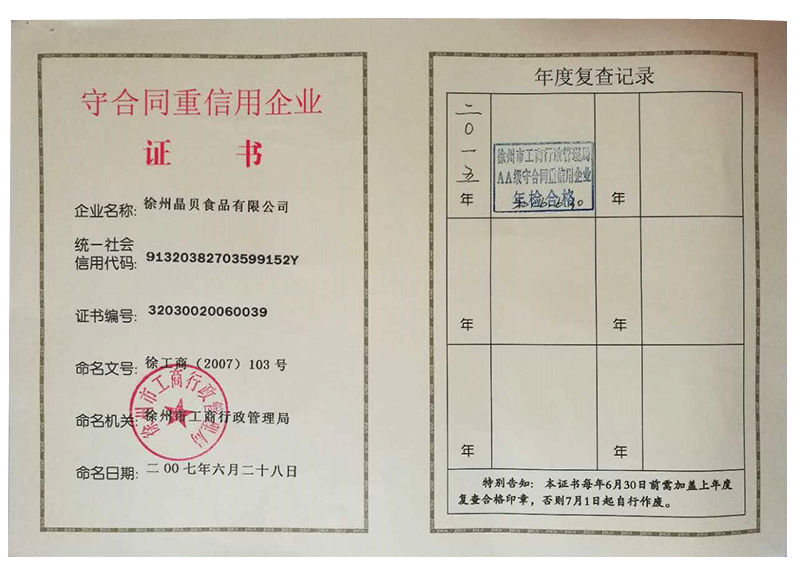 守合同重信用企业
证 书
企业名称: 徐州晶贝食品有限公司
统一社会
信用代码: 91320382703599152Y
证书编号: 32030020060039
命名文号: 徐工商（2007）103号
命名机关: 徐州市工商行政管理局
命名日期: 二00七年六月二十八日
徐州市工商行政管理局
年度复查记录
二0一五年
徐州市工商行政管理局
AA级守合同重信用企业
年检合格
年
年
年
年
年
特别告知: 本证书每年6月30日前需加盖上年度
复查合格印章，否则7月1日起自行作废。